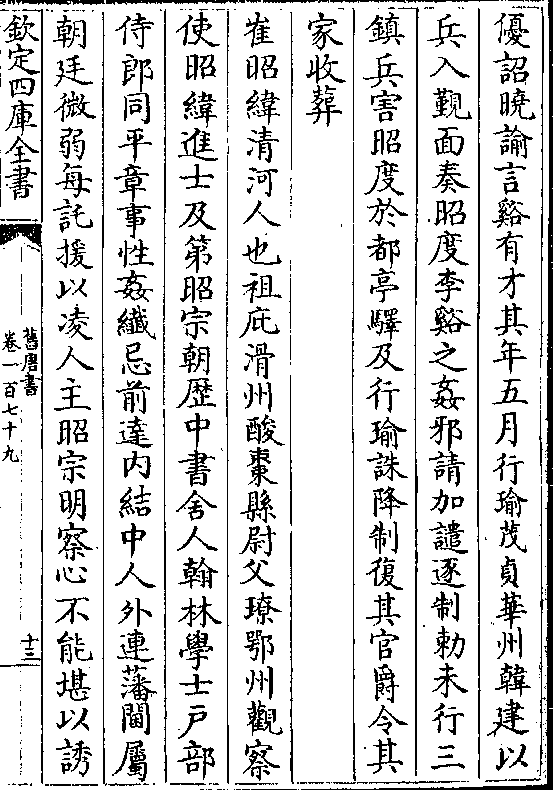 優詔曉諭言谿有才其年五月行瑜茂貞華州韓建以
兵入覲面奏昭度李谿之姦邪請加譴逐制勅未行三
鎮兵害昭度於都亭驛及行瑜誅降制復其官爵令其
家收葬
崔昭緯清河人也祖庇滑州酸棗縣尉父㻽鄂州觀察
使昭緯進士及第昭宗朝歴中書舍人翰林學士戸部
侍郎同平章事性姦纎忌前達内結中人外連藩閫屬
朝廷微弱每託援以凌人主昭宗明察心不能堪以誘
欽定四庫全書
舊唐書
卷一百七十九
十三